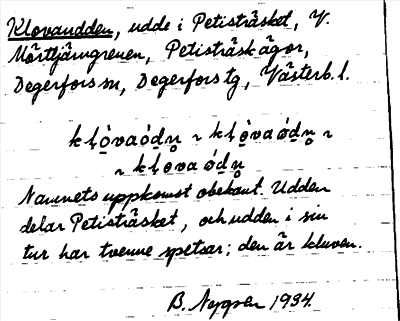 Klovaudden, udde i Petisträsket, V.
Mörttjärngrenen, Petisträsk ägor,
Degerfors sn, Degerfors tg, Västerb. l.
klo̱vaód̥n̥ ~ klo̱vaód̥n̥ ~
~ klo̱va ód̥n̥
Namnets uppkomst obekant. Udden
delar Petisträsket, och udden i sin
tur har tvenne spetsar; den är kluven.
B. 1934.